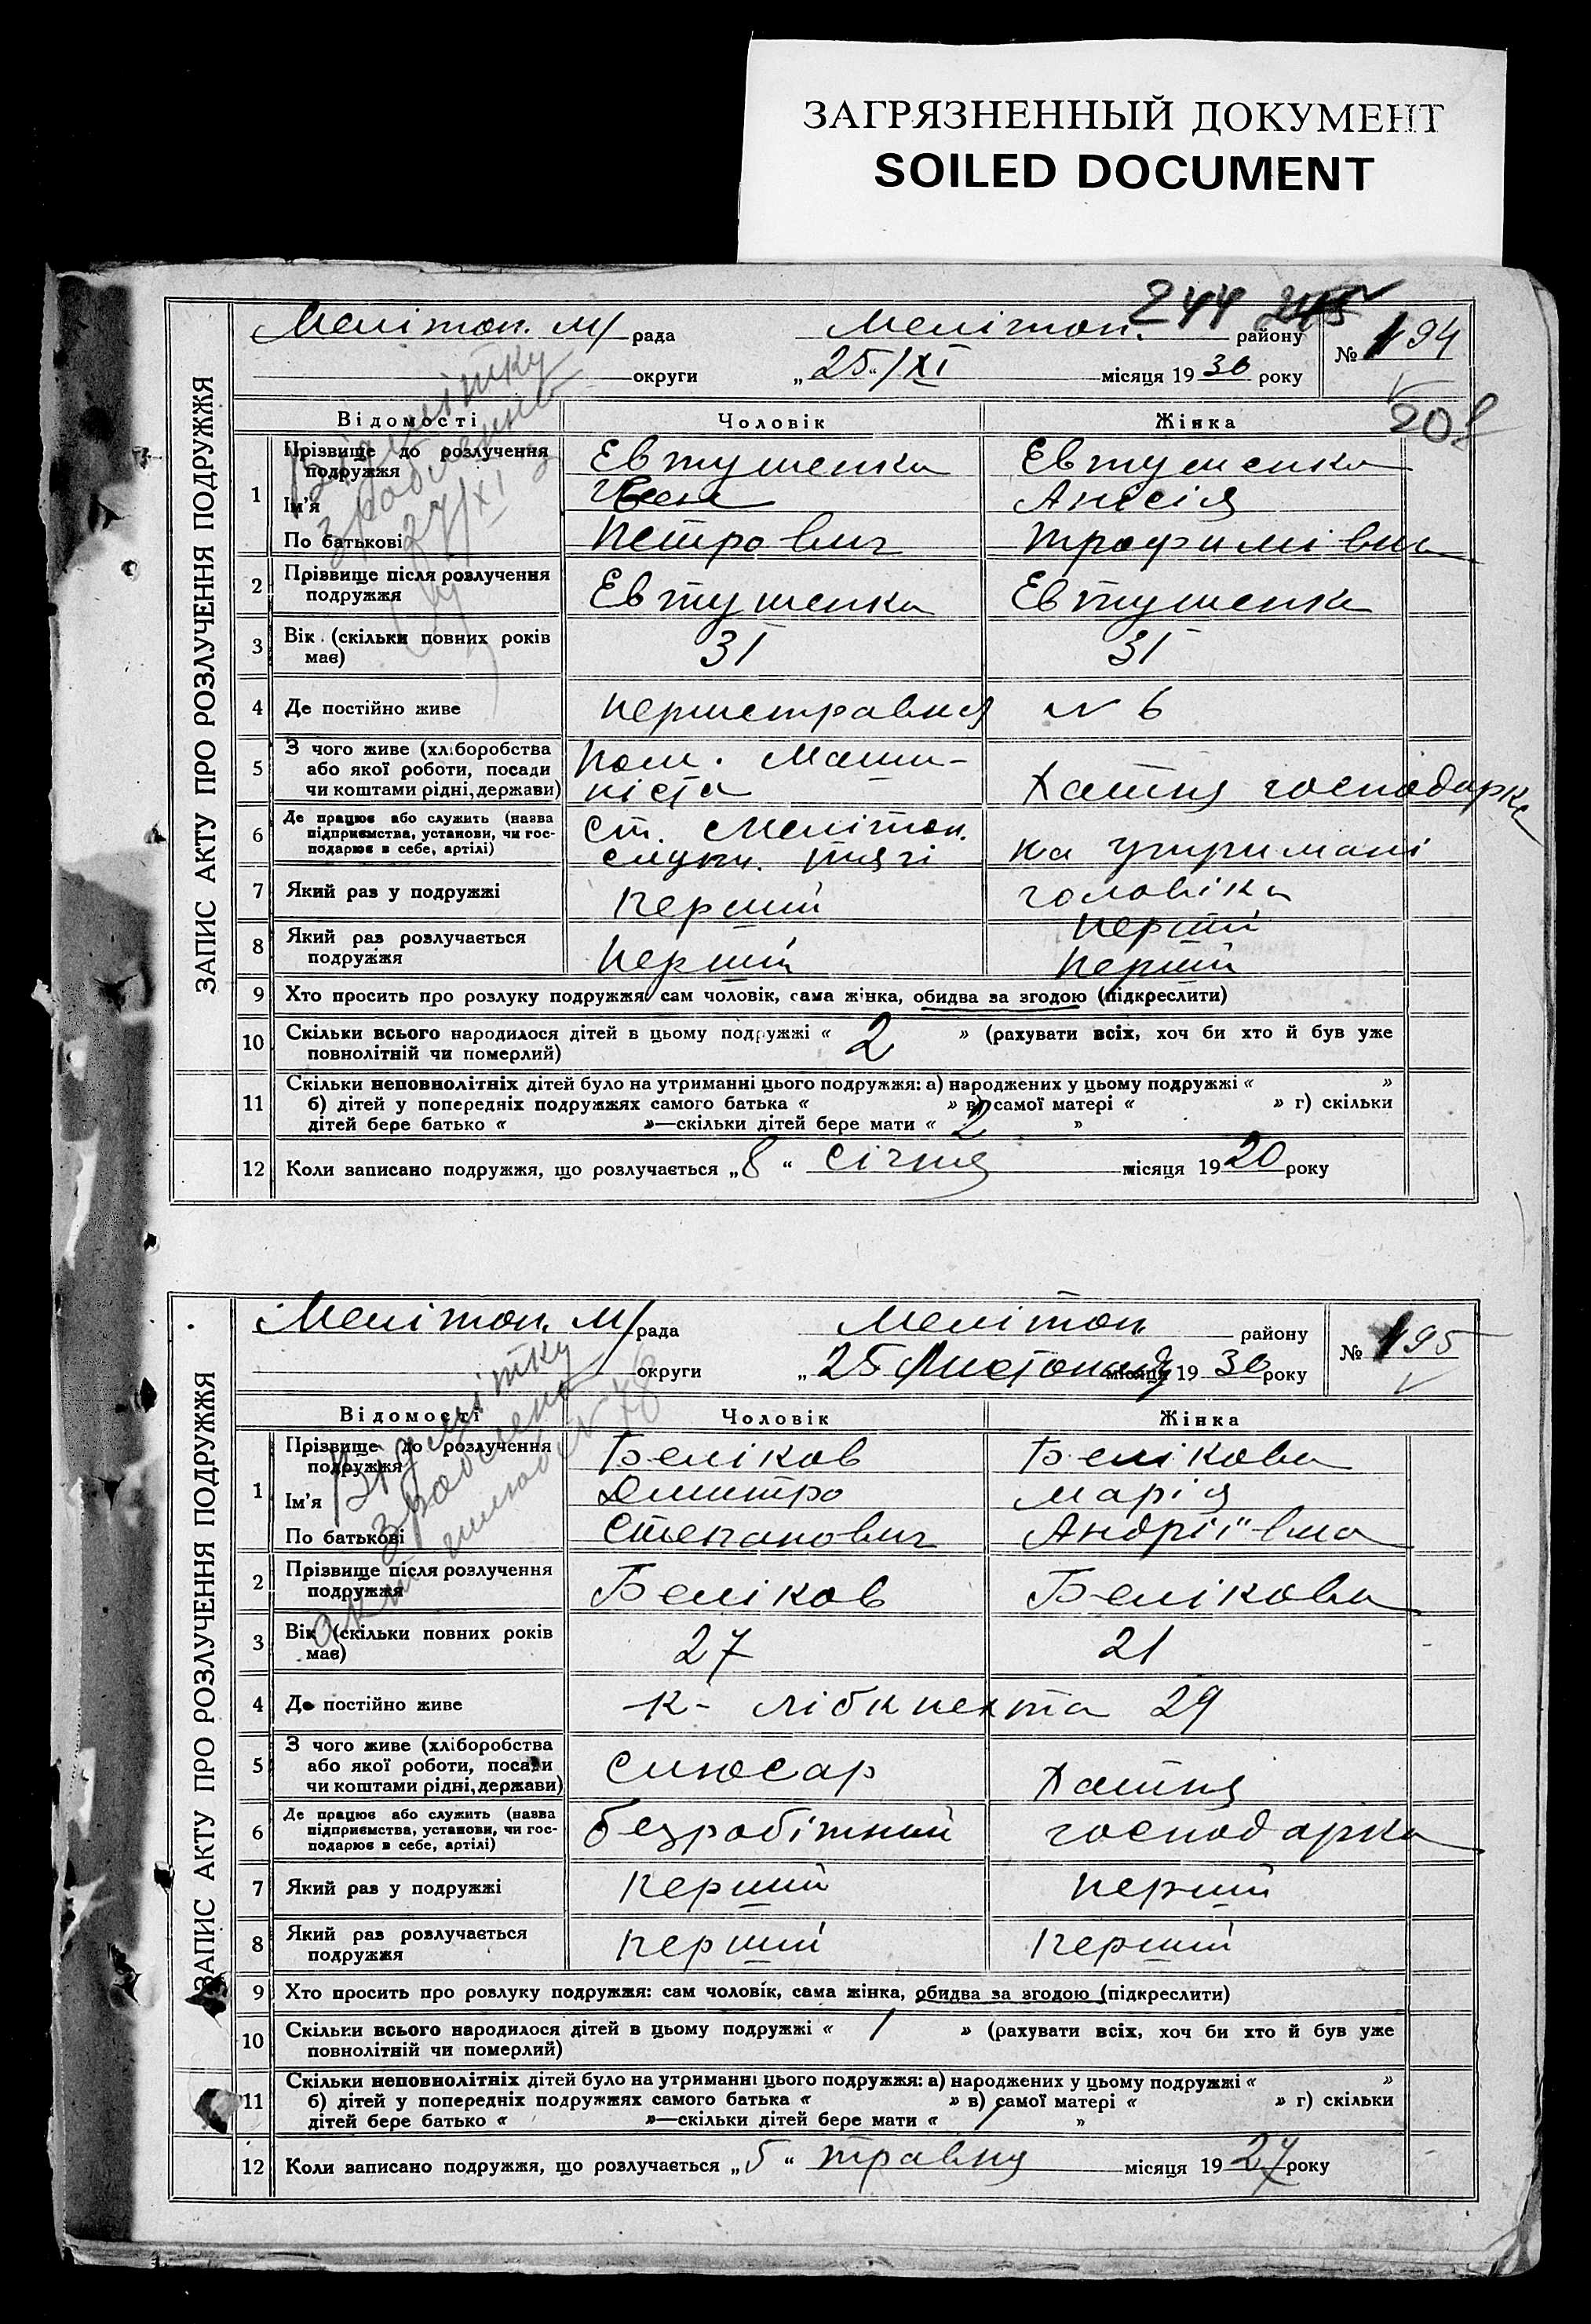 ЗАГРЯЗНЕННЫЙ ДОКУМЕНТ
SOILED DOCUMENT
244 245
ЗАПИС АКТУ ПРО РОЗЛУЧЕННЯ ПОДРУЖЖЯ
Мелітоп. м/рада Мелітоп. району № 194
округи „25“/XI місяця 1930 року
208
Відмітку зроблено 27/XI
Відомості Чоловік Жінка
1 Прізвище до розлучення подружжя Евтушенко Евтушенко
Ім'я Анісія
По батькові Петрович Трофимівна
2 Прізвище після розлучення подружжя Евтушенко Евтушенко
3 Вік (скільки повних років має) 31 31
4 Де постійно живе першетравня N 6
5 З чого живе (хліборобства або якої роботи, посади чи коштами рідні, держави) Пом. Маши-ніста Хатня господарка
6 Де працює або служить (назва підприємства, установи, чи господарює в себе, артілі) Ст. Мелітоп. тягі на утримані чоловіка
7 Який раз у подружжі перший перший
8 Який раз розлучається подружжя перший перший
9 Хто просить про розлуку подружжя: сам чоловік, сама жінка, обидва за згодою (підкреслити)
10 Скільки всього народилося дітей в цьому подружжі « 2 » (рахувати всіх, хоч би хто й був уже
повнолітній чи померлий)
11 Скільки неповнолітніх дітей було на утриманні цього подружжя: а) народжених у цьому подружжі « »
б) дітей у попередніх подружжях самого батька « » в) самої матері « » г) скільки
дітей бере батько « »—скільки дітей бере мати « 2 »
12 Коли записано подружжя, що розлучається „8“ січня місяця 1920 року
ЗАПИС АКТУ ПРО РОЗЛУЧЕННЯ ПОДРУЖЖЯ
Мелітоп. м/рада Мелітоп. району № 195
округи „25 Листопада місяця 1930 року
Відмітку зроблено
Відомості Чоловік Жінка
1 Прізвище до розлучення подружжя Беліков Белікова
Ім'я Дмитро Марія
По батькові Степанович Андріївна
2 Прізвище після розлучення подружжя Беліков Белікова
3 Вік (скільки повних років має) 27 21
4 Де постійно живе К- Лібкнехта 29
5 З чого живе (хліборобства або якої роботи, посади чи коштами рідні, держави) Слюсар Хатня
6 Де працює або служить (назва підприємства, установи, чи господарює в себе, артілі) безробітний господарка
7 Який раз у подружжі перший перший
8 Який раз розлучається подружжя перший перший
9 Хто просить про розлуку подружжя: сам чоловік, сама жінка, обидва за згодою (підкреслити)
10 Скільки всього народилося дітей в цьому подружжі « 1 » (рахувати всіх, хоч би хто й був уже
повнолітній чи померлий)
11 Скільки неповнолітніх дітей було на утриманні цього подружжя: а) народжених у цьому подружжі « »
б) дітей у попередніх подружжях самого батька « » в) самої матері « » г) скільки
дітей бере батько « »—скільки дітей бере мати « 1 »
12 Коли записано подружжя, що розлучається „5“ травня місяця 1927 року